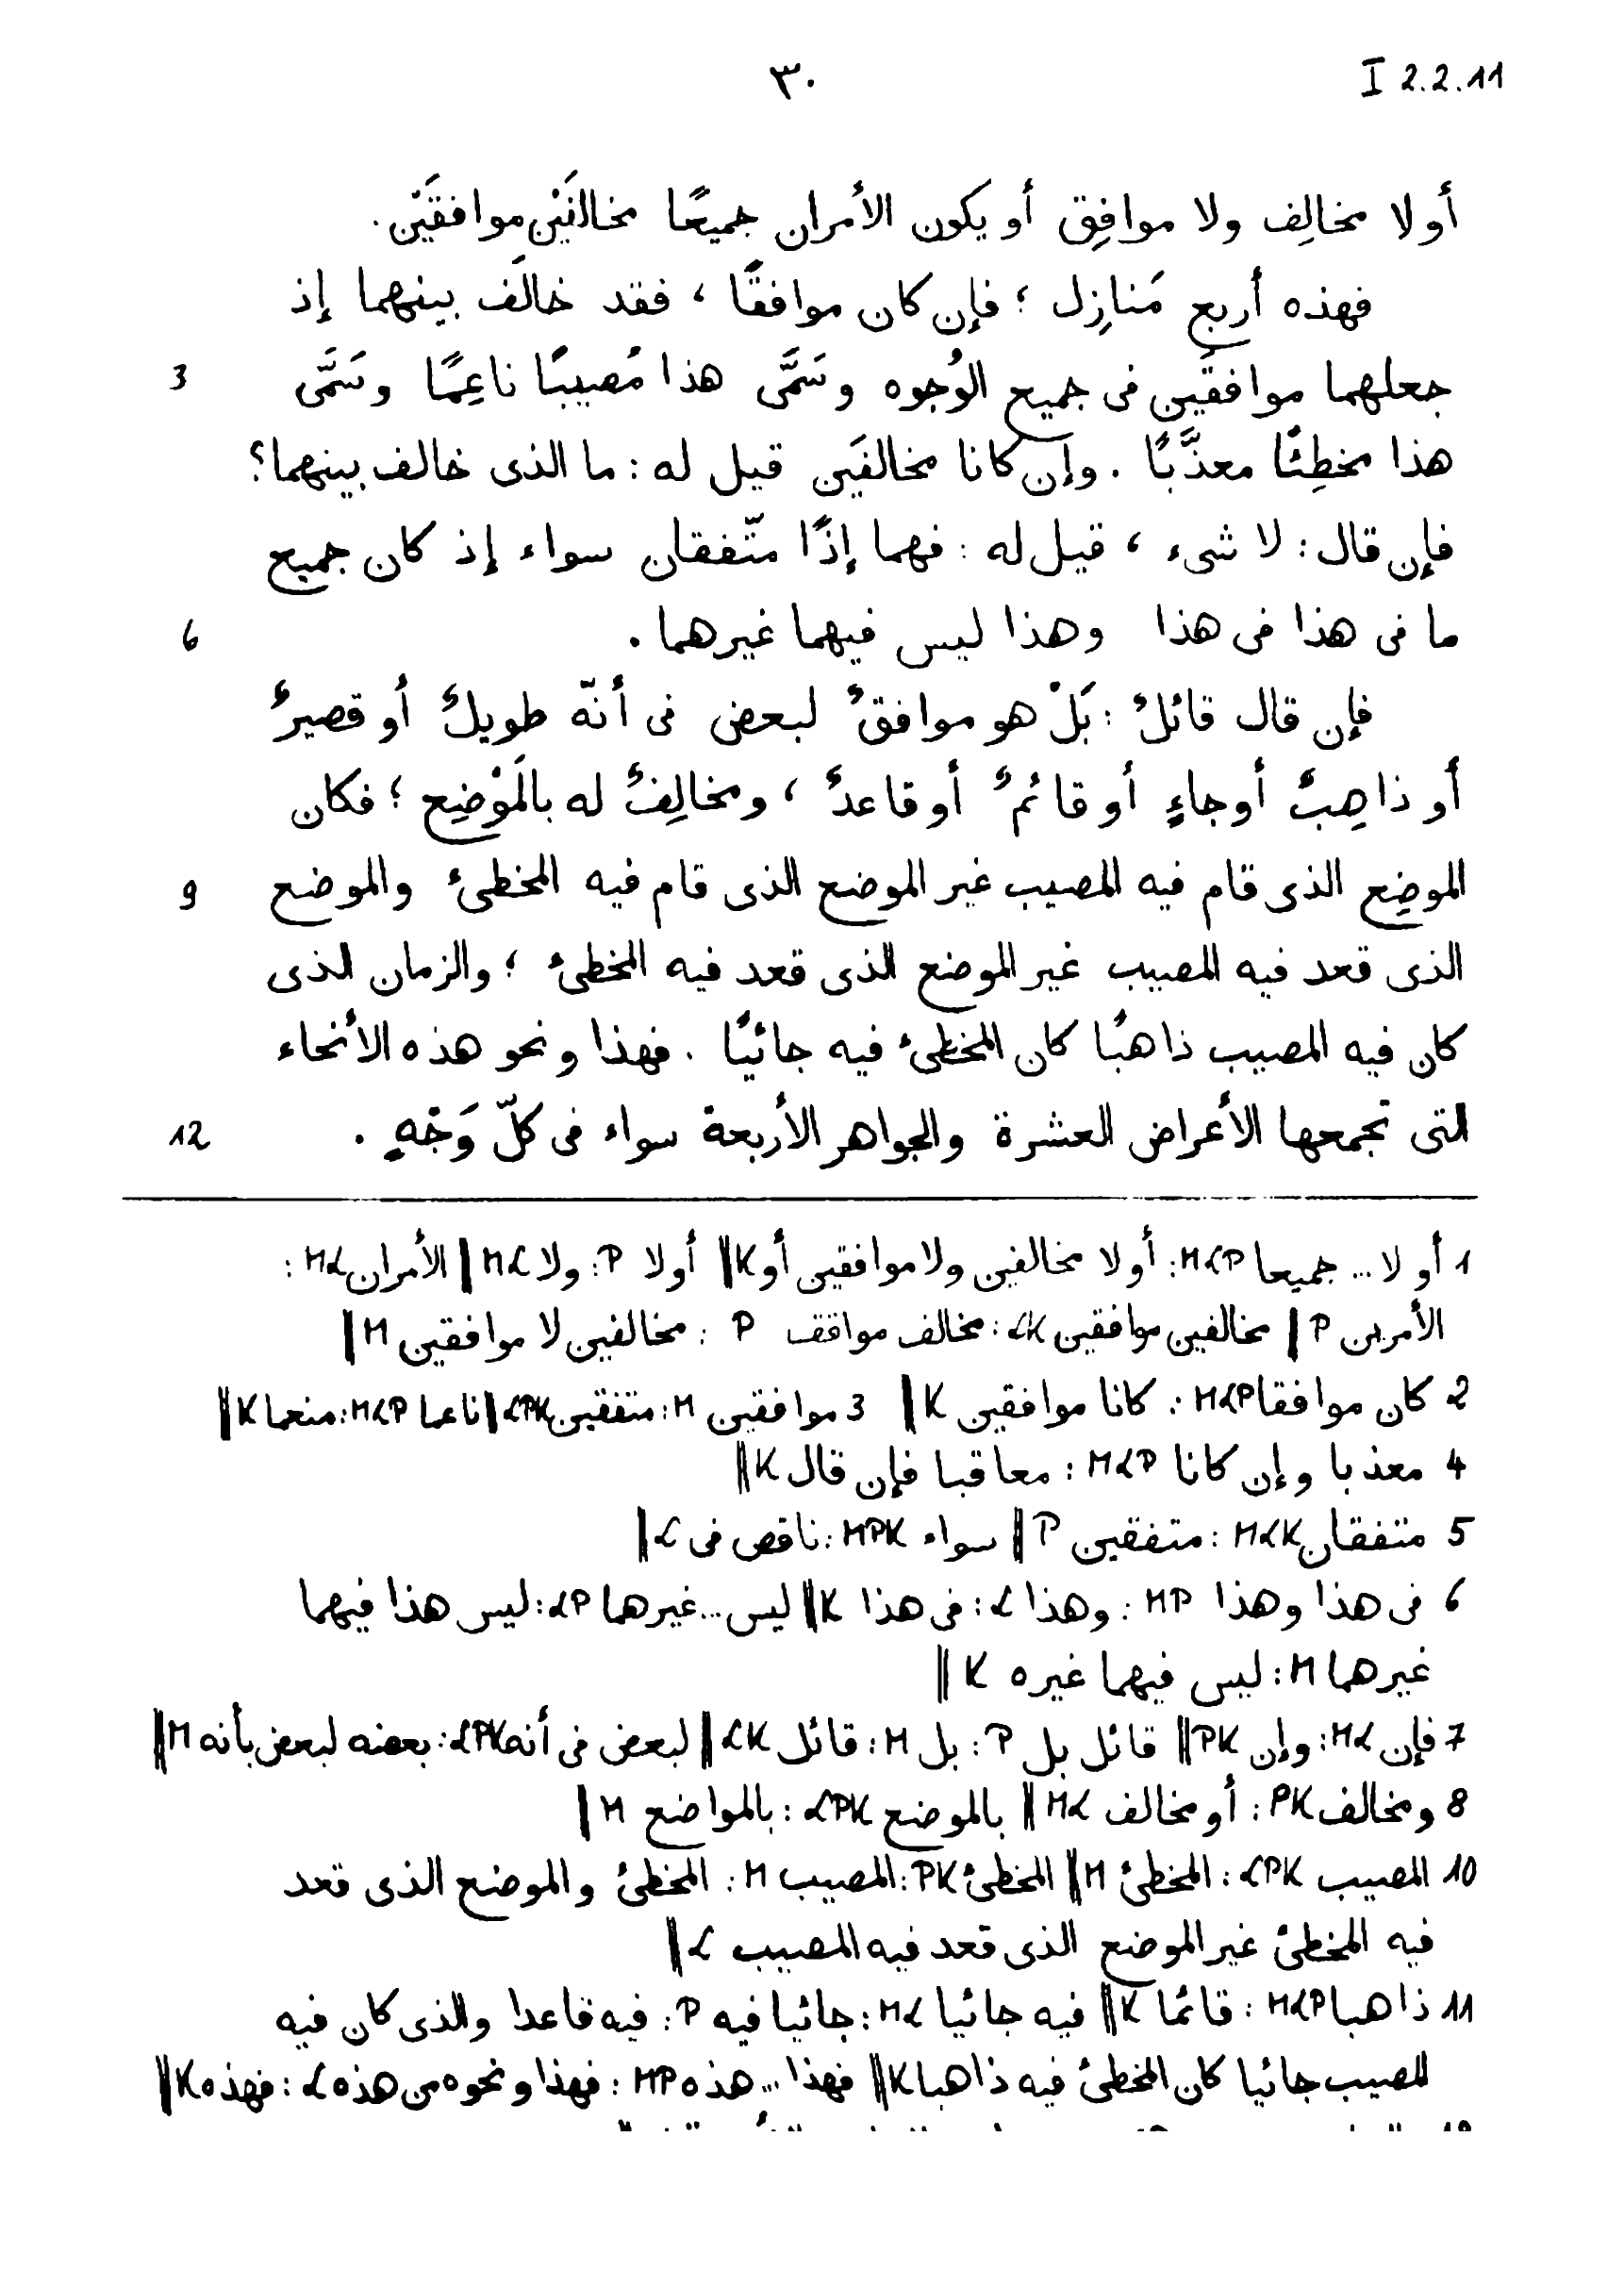 I 2.2.11
٣٠
أولا مخالِف ولا موافِق أو يكون الأمران جميعًا مخالفَيْن موافقَيْن.
فهذه أربع مَنازِل ؛ فإن كان موافقًا ، فقد خالَف بينهما إذ
جعلهما موافقَين فى جميع الوُجوه وسَمَّى هذا مُصيبًا ناعِمًا وسَمَّى
3
هذا مخطِئًا معذَّبًا . وإن كانا مخالفَين قيل له : ما الذى خالف بينهما؟
فإن قال : لا شىء ، قيل له : فهما إذًا متّفقان سواء إذ كان جميع
ما فى هذا فى هذا وهذا ليس فيهما غيرهما .
6
فإن قال قائلٌ : بَلْ هو موافقٌ لبعض فى أنّه طويلٌ أو قصيرٌ
أو ذاهِبٌ أوجاءٍ أو قائمٌ أو قاعدٌ ، ومخالِفٌ له بالمَوْضِع ؛ فكان
الموضِع الذى قام فيه المصيب غير الموضع الذى قام فيه المخطىء والموضع
9
الذى قعد فيه المصيب غير الموضع الذى قعد فيه المخطىء ؛ والزمان الذى
كان فيه المصيب ذاهبًا كان المخطىء فيه جائيًا . فهذا ونحو هذه الأنحاء
التى تجمعها الأعراض العشرة والجواهر الأربعة سواء فى كلّ وَجْهٍ .
12
1 أو لا ... جميعا MLP: أو لا مخالفين ولا موافقين أو K || أولا P: ولا ML || الأمران ML:
الأمرين P || مخالفين موافقين LK: مخالف موافقف P : مخالفين لا موافقين M ||
2 كان موافقا MLP: كانا موافقين K || 3 موافقين M: متفقين LPK || ناعما MLP: منعما K ||
4 معذبا وإن كانا MLP : معاقبا فإن قال K ||
5 متفقان MLK : متفقين P || سواء MPK : ناقص فى L ||
6 فى هذا وهذا MP : وهذا L : فى هذا K || ليس ... غيرهما LP: ليس هذا فيهما
غيرهما M : ليس فيهما غيره K ||
7 فإن ML: وإن PK || قائل بل P : بل M : قائل LK || لبعض فى أنه LPK: بعضه لبعض بأنه M ||
8 ومخالف PK: أو مخالف ML || بالموضع LPK : بالمواضع M ||
10 المصيب LPK : المخطئ M || المخطئ PK: المصيب M : المخطئ والموضع الذى قعد
فيه المخطئ غير الموضع الذى قعد فيه المصيب L ||
11 ذاهبا MLP : قائما K || فيه جائيا ML : جائيا فيه P: فيه قاعدا والذى كان فيه
المصيب جائيا كان المخطئ فيه ذاهبا K || فهذا ... هذه MP : فهذا ونحوه من هذه L : فهذه K ||